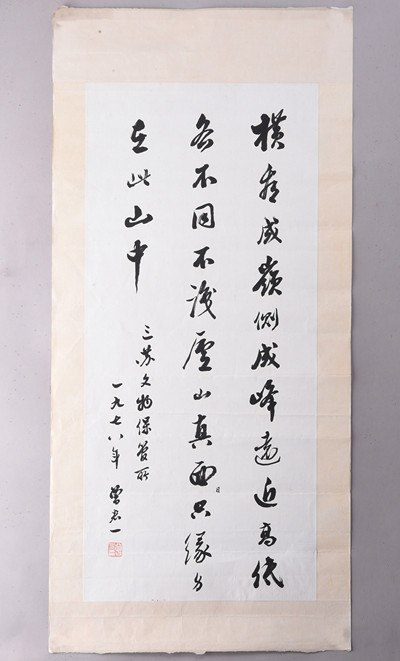 橫看成嶺側成峰遠近高低
各不同不識廬山真面目只緣身
在此山中
三蘇文物保管所
一九七八年 曾君一